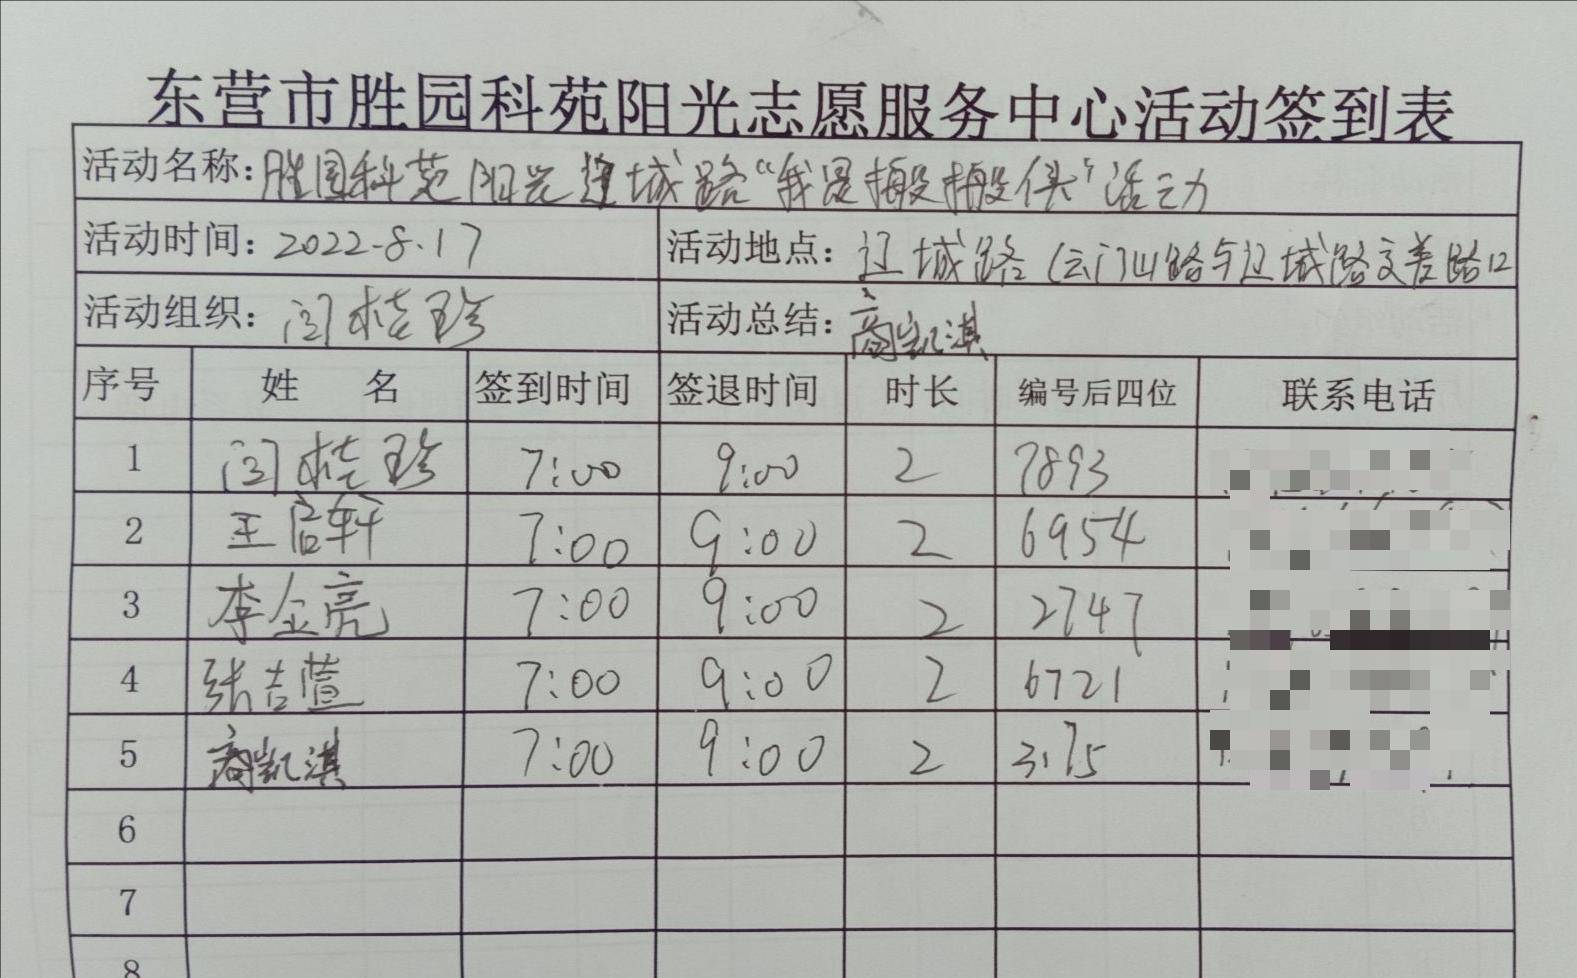 东营市胜园科苑阳光志愿服务中心活动签到表
活动名称：胜园科苑阳光 城路“我是搬搬侠”活动
活动时间：2022-8.17 活动地点：辽城路（云门山路与辽城路交差路口
活动组织：闫桂珍 活动总结：商凯淇
序号 姓 名 签到时间 签退时间 时长 编号后四位 联系电话
1 闫桂珍 7:00 9:00 2 7893
2 王启轩 7:00 9:00 2 6954
3 李金亮 7:00 9:00 2 2747
4 张吉萱 7:00 9:00 2 6721
5 商凯淇 7:00 9:00 2 3175
6
7
8